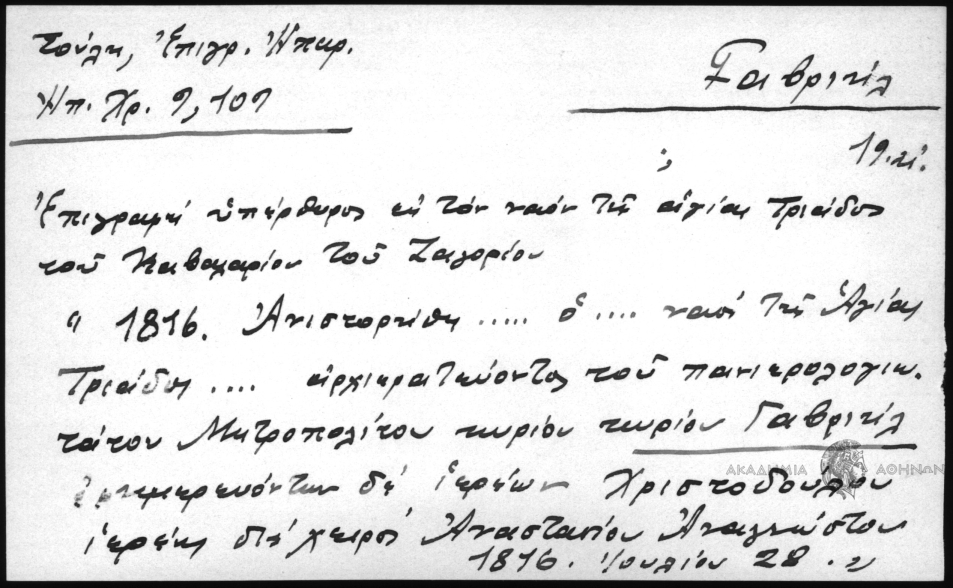 Τούλη, Ἐπιγρ. Ἠπειρ.
Ἠπ. Χρ. 9, 109
Γαβριήλ
19. αἰ.
Ἐπιγραφή ὑπέρθυρος εἰς τόν ναόν τῆς ἁγίας Τριάδος
τοῦ Καβαλαρίου τοῦ Ζαγορίου
" 1816. Ἀνιστορήθη ..... ὁ .... ναός τῆς Ἁγίας
Τριάδος .... ἀρχιερατεύοντος τοῦ πανιερολογιω-
τάτου Μητροπολίτου κυρίου κυρίου Γαβριήλ
ἐφημερευόντων δέ ἱερέων Χριστοδούλου
ἱερέως διά χειρός Ἀναστασίου Ἀναγνώστου
1816. Ἰουλίου 28. "
ΑΚΑΔΗΜΙΑ ΑΘΗΝΩΝ